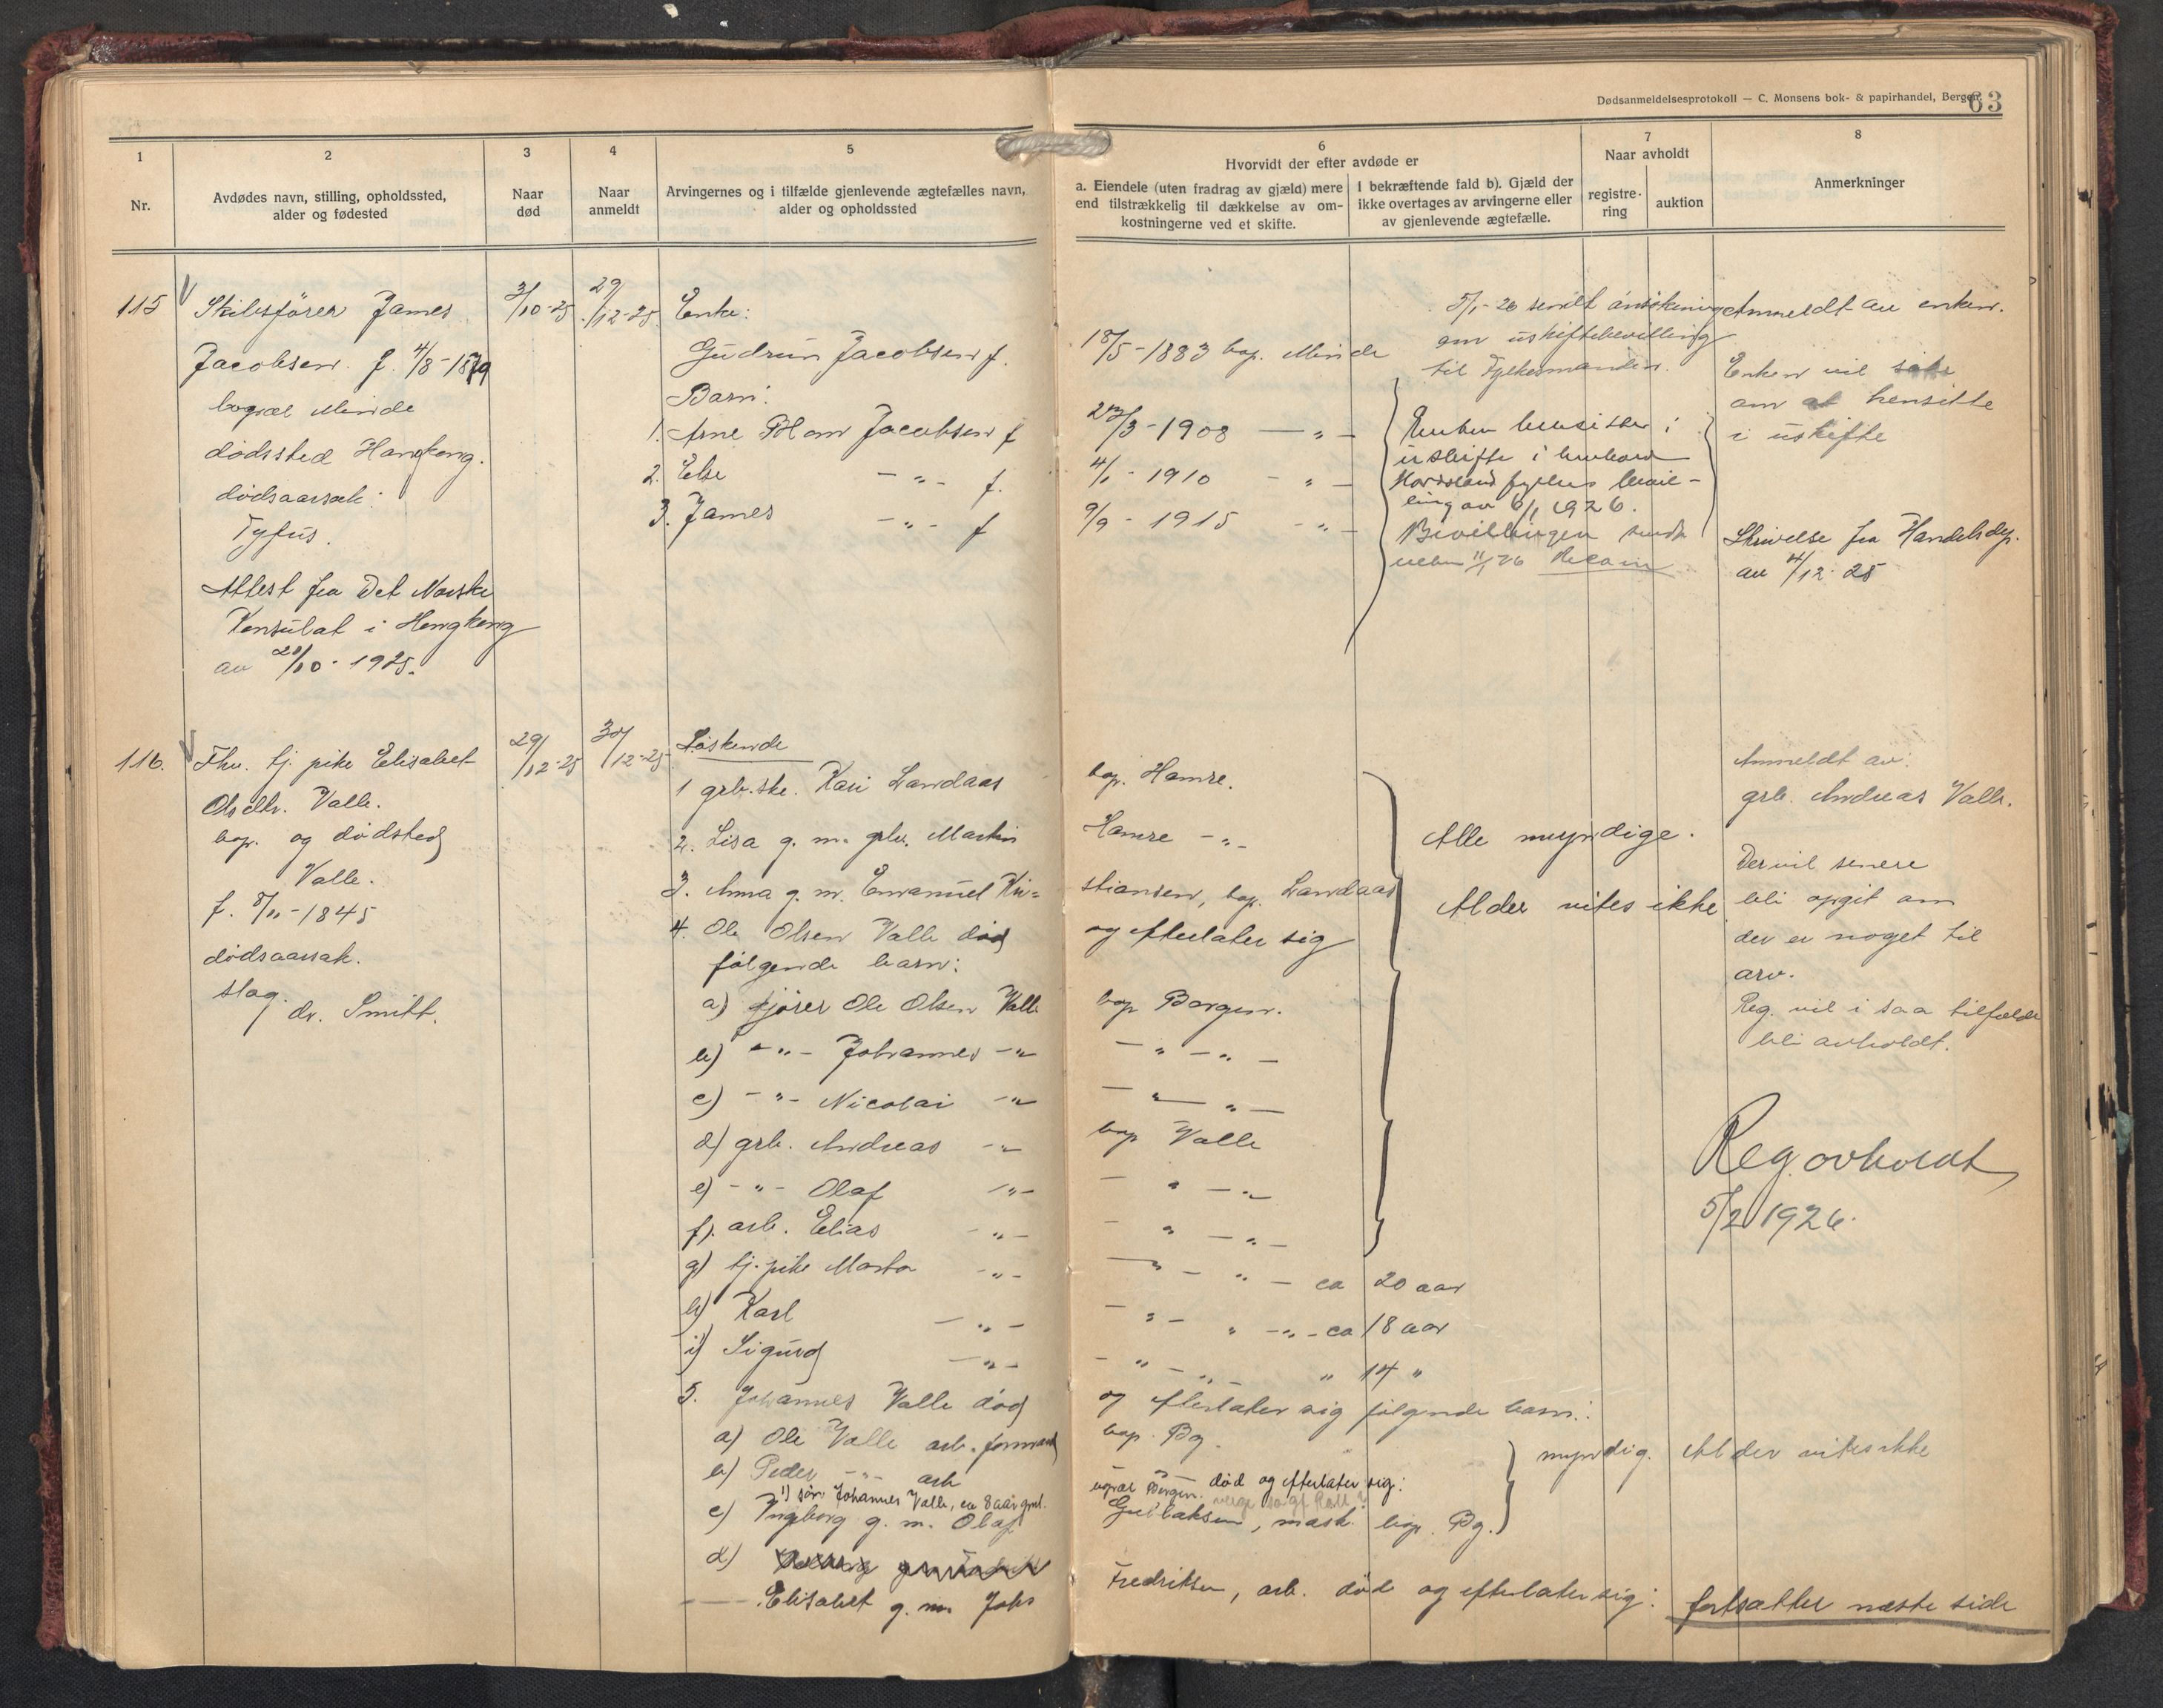 Dødsanmeldelsesprotokoll — C. Monsens bok- & papirhandel, Bergen.
63
1
Nr.
2
Avdødes navn, stilling, opholdssted,
alder og fødested
3
Naar
død
4
Naar
anmeldt
5
Arvingernes og i tilfælde gjenlevende ægtefælles navn,
alder og opholdssted
6
Hvorvidt der efter avdøde er
a. Eiendele (uten fradrag av gjæld) mere
end tilstrækkelig til dækkelse av om-
kostningerne ved et skifte.
I bekræftende fald b). Gjæld der
ikke overtages av arvingerne eller
av gjenlevende ægtefælle.
7
Naar avholdt
registre-
ring
auktion
8
Anmerkninger
115
Skibsfører James
Jacobsen f. 4/8-1879
bopæl Minde
dødssted Hongkong.
dødsaarsak:
Tyfus.
Attest fra Det Norske
Konsulat i Hongkong
av 20/10-1925.
3/10-25
29/12-25
Enke:
Gudrun Jacobsen f. 18/5-1883 bop. Minde
Barn:
1. Arne Blom Jacobsen f 23/3-1908 — „ —
2. Else — „ — f. 4/1-1910 - „ —
3. James — „ — f 9/9-1915 - „ —
5/1-26 sendt ansökning
om uskiftebevilling
til Fylkesmanden.
Enken hensitter i
uskifte i henhold
Hordaland fylkes bevil-
ling av 6/1 1926.
Bevillingen sendt
enken 11/1 26
Anmeldt av enken.
Enken vil søke
om at hensitte
i uskifte
Skrivelse fra Handelsdep.
av 4/12-25
116.
Fhv. tj. pike Elisabet
Olsdtr. Valle.
bop. og dødsted
Valle.
f. 8/11-1845
dødsaarsak.
slag.
dr. Smitt.
29/12-25
30/12-25
Søskende
1 grb.ske. Kari Landaas bop. Hamre.
2. Lisa g. m. grbr. Martin Hamre - „ -
3. Anna g. m. Emanuel Kri= stiansen, bop. Landaas
4. Ole Olsen Valle død og efterlater sig
følgende barn:
a) kjører Ole Olsen Valle bop Bergen.
b) - „ - Johannes - „ — „ — „ —
c) - „ - Nicolai - „ — „ — „ —
d) grb. Andreas - „ bop Valle
e) - „ - Olaf - „ - — „ — „
f). arb. Elias - „ - — „ — „ —
g) tj. pike Marta - „ - — „ — „ — ca 20 aar
h) Karl — „ — - „ - „ - „ - ca 18 aar
i) Sigurd — „ — - „ - „ - „ 14 „
Alle myndige.
Alder vites ikke
5. Johannes Valle død og efterlater sig følgende barn:
a) Ole Valle arb. formand bop. Bg.
b) Peder - „ - arb
bopæl Bergen. død og efterlater sig:
1) søn Johannes Valle, ca 8 aar gml.
c) Ingeborg g. m. Olaf Gullaksen, mask. bop. Bg.
myndig. Alder vites ikke
d)
Elisabet g. m. Johs Fredriksen, arb. død og efterlater sig: fortsætter næste side
Anmeldt av:
grb. Andreas Valle.
Der vil senere
bli opgit om
der er noget til
arv.
Reg. vil i saa tilfælde
bli avholdt.
Reg. avholdt
5/2 1926.